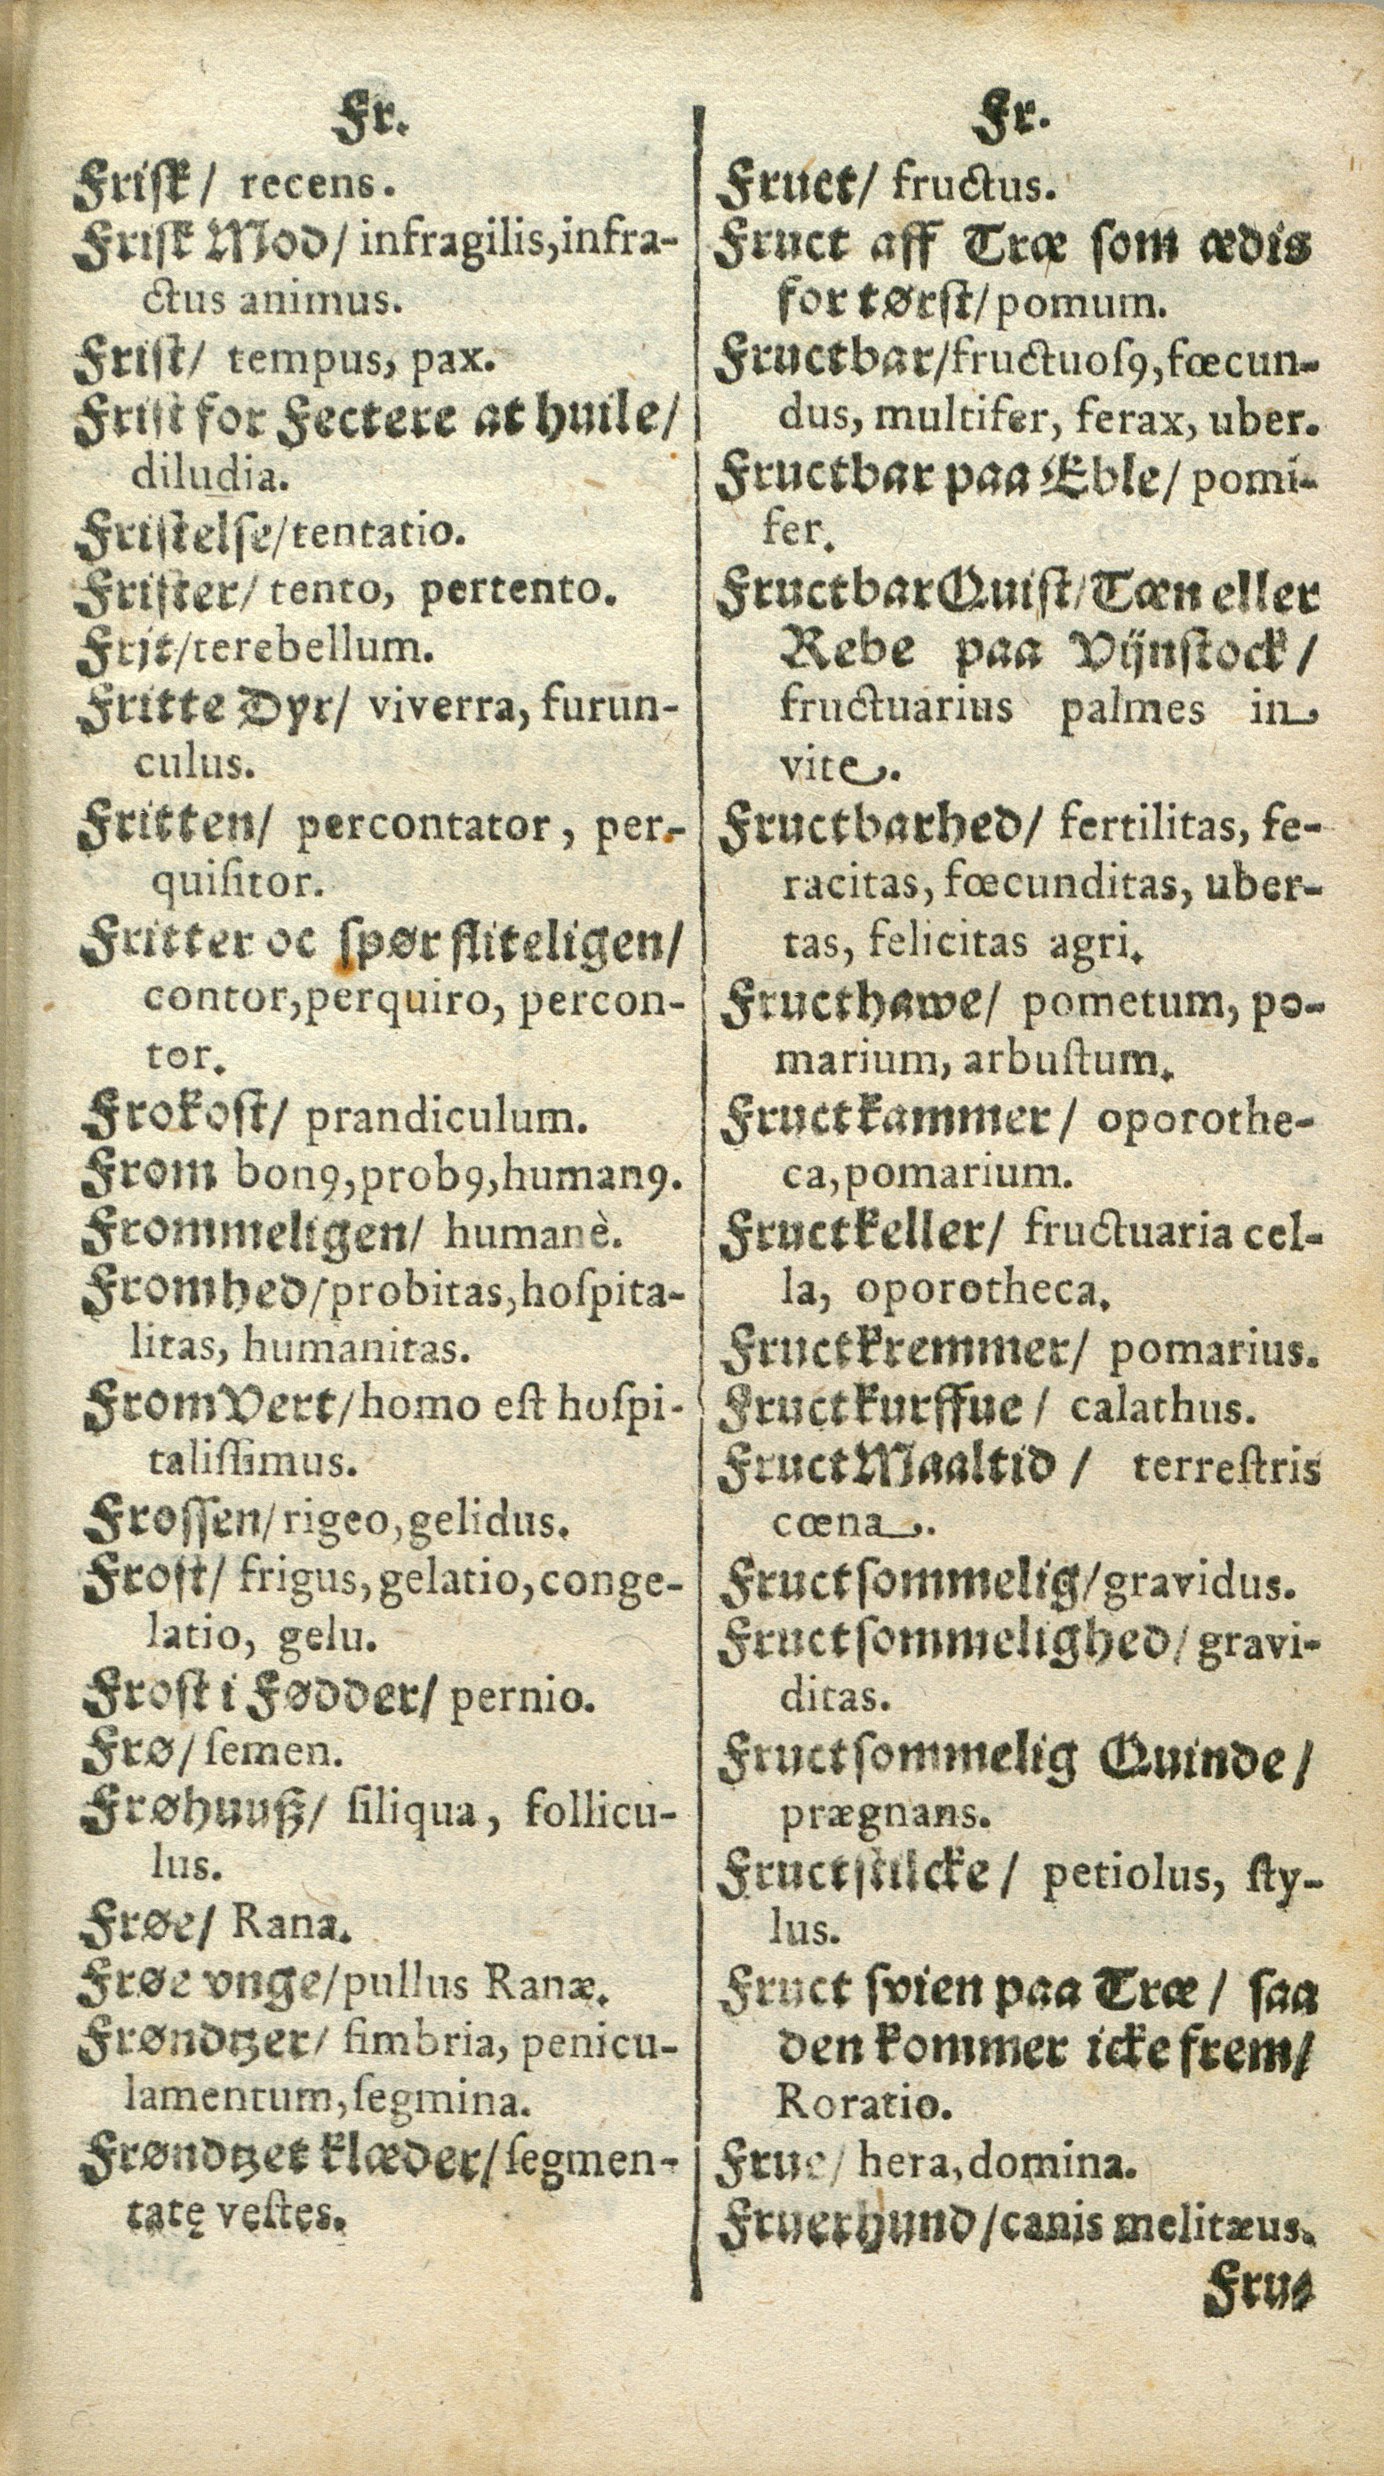 Fr.
Friſk/ recens.
Friſk Mod/ infragilis,infra-
ctus animus.
Friſt/ tempus, pax.
Friſt for Fectere at huile/
diludia.
Friſtelſe/tentatio.
Friſter/ tento, pertento.
Frit/terebellum.
Fritte Dyr/ viverra, furun-
culus.
Fritten/ percontator, per-
quiſitor.
Fritter oc ſpør fliteligen/
contor,perquiro, percon-
tor.
Frokoſt/ prandiculum.
From bonꝰ,probꝰ,humanꝰ.
Frommeligen/ humanè.
Fromhed/probitas,hoſpita-
litas, humanitas.
From Vert/homo eſt hoſpi-
taliſſimus.
Froſſen/rigeo,gelidus.
Froſt/ frigus,gelatio,conge-
latio, gelu.
Froſt i Fødder/ pernio.
Frø/ ſemen.
Frøhuuß/ ſiliqua, follicu-
lus.
Frøe/ Rana.
Frøe vnge/pullus Ranæ.
Frøndtzer/ fimbria, penicu-
lamentum,ſegmina.
Frøndtzet klæder/ſegmen-
tatę veſtes.
Fr.
Fruct/ fructus.
Fruct aff Træ ſom ædis
for tørſt/pomum.
Fructbar/fructuoſꝰ,fœcun-
dus, multifer, ferax, uber.
Fructbar paa Eble/ pomi-
fer.
Fructbar Quiſt/Tæn eller
Rebe paa Vijnſtock/
fructuarius palmes in
vite.
Fructbarhed/ fertilitas, fe-
racitas, fœcunditas, uber-
tas, felicitas agri.
Fructhawe/ pometum, po-
marium, arbuſtum.
Fructkammer/ oporothe-
ca,pomarium.
Fructkeller/ fructuaria cel-
la, oporotheca.
Fructkremmer/ pomarius.
Fructkurffue/ calathus.
Fruct Maaltid/ terreſtris
cœna.
Fructſommelig/gravidus.
Fructſommelighed/gravi-
ditas.
Fructſommelig Quinde/
prægnans.
Fructſtilcke/ petiolus, ſty-
lus.
Fruct ſvien paa Træ/ ſaa
den kommer icke frem/
Roratio.
Frue/ hera,domina.
Fruerhund/canis melitæus.
Fru-